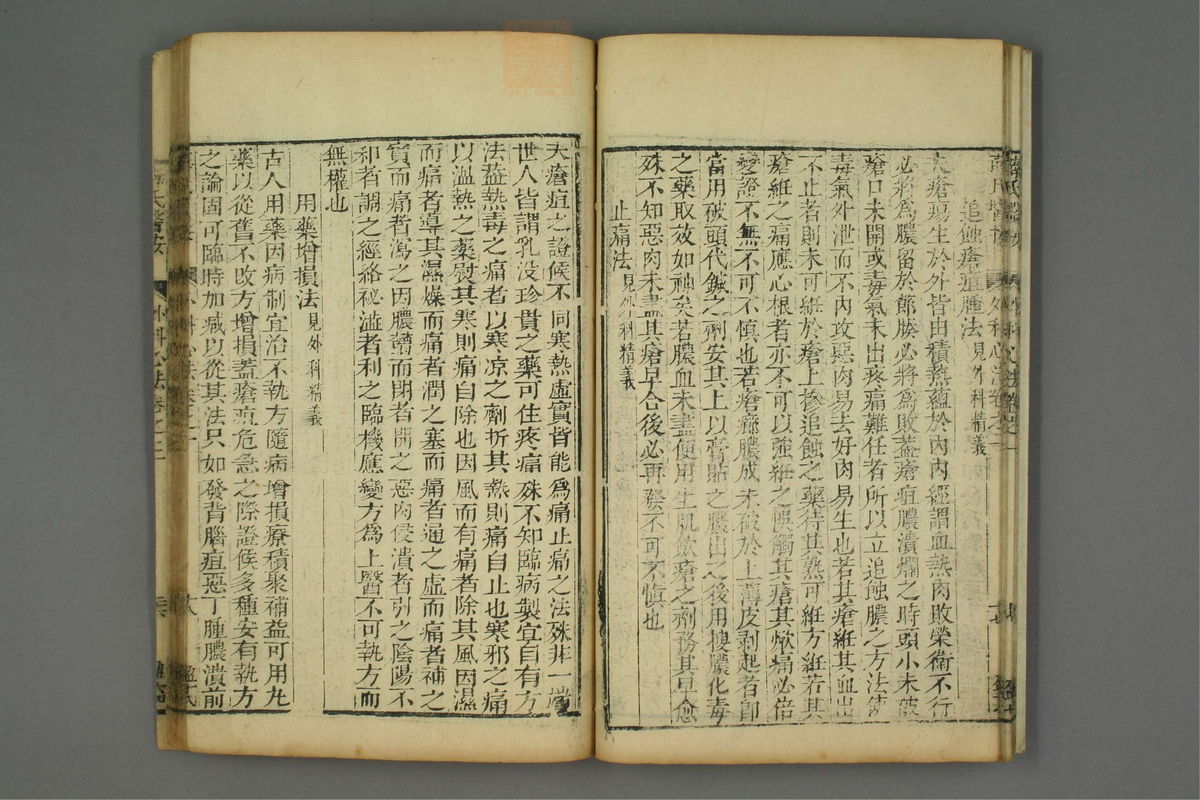 追蝕瘡疽腫法見外科精義
夫瘡瘍生於外皆由積熱蘊於內內經謂血熱肉敗榮衛不行
必將爲膿留於節腠必將爲敗蓋瘡疽膿潰爛之時頭小未破
瘡口未開或毒氣未出疼痛難任者所以立追蝕膿之方法使
毒氣外泄而不內攻惡肉易去好肉易生也若其瘡紝其血出
不止者則未可紝於瘡上摻追蝕之藥待其熟可紝方紝若其
瘡紝之痛應心根者亦不可以強紝之誤觸其瘡其焮痛必倍
變證不無不可不慎也若瘡癤膿成未破於上薄皮剥起者即
當用破頭代鍼之劑安其上以膏貼之膿出之後用搜膿化毒
之藥取效如神矣若膿血未盡便用生肌歛瘡之劑務其早愈
殊不知惡肉未盡其瘡早合後必再發不可不慎也
止痛法見外科精義
夫瘡疽之證候不同寒熱虛實皆能爲痛止痛之法殊非一端
世人皆謂乳没珍貴之藥可住疼痛殊不知臨病製宜自有方
法蓋熱毒之痛者以寒凉之劑折其熱則痛自止也寒邪之痛
以溫熱之藥熨其寒則痛自除也因風而有痛者除其風因濕
而痛者導其濕燥而痛者潤之塞而痛者通之虛而痛者補之
實而痛者瀉之因膿鬱而閉者開之惡肉侵潰者引之陰陽不
和者調之經絡祕澁者利之臨機應變方爲上醫不可執方而
無權也
用藥增損法見外科精義
古人用藥因病制宜治不執方隨病增損療積聚補益可用九
藥以從舊不改方增損蓋瘡疽危急之際證候多種安有執方
之論固可臨時加减以從其法只如發背腦疽惡丁腫膿潰前
外科心法卷之二